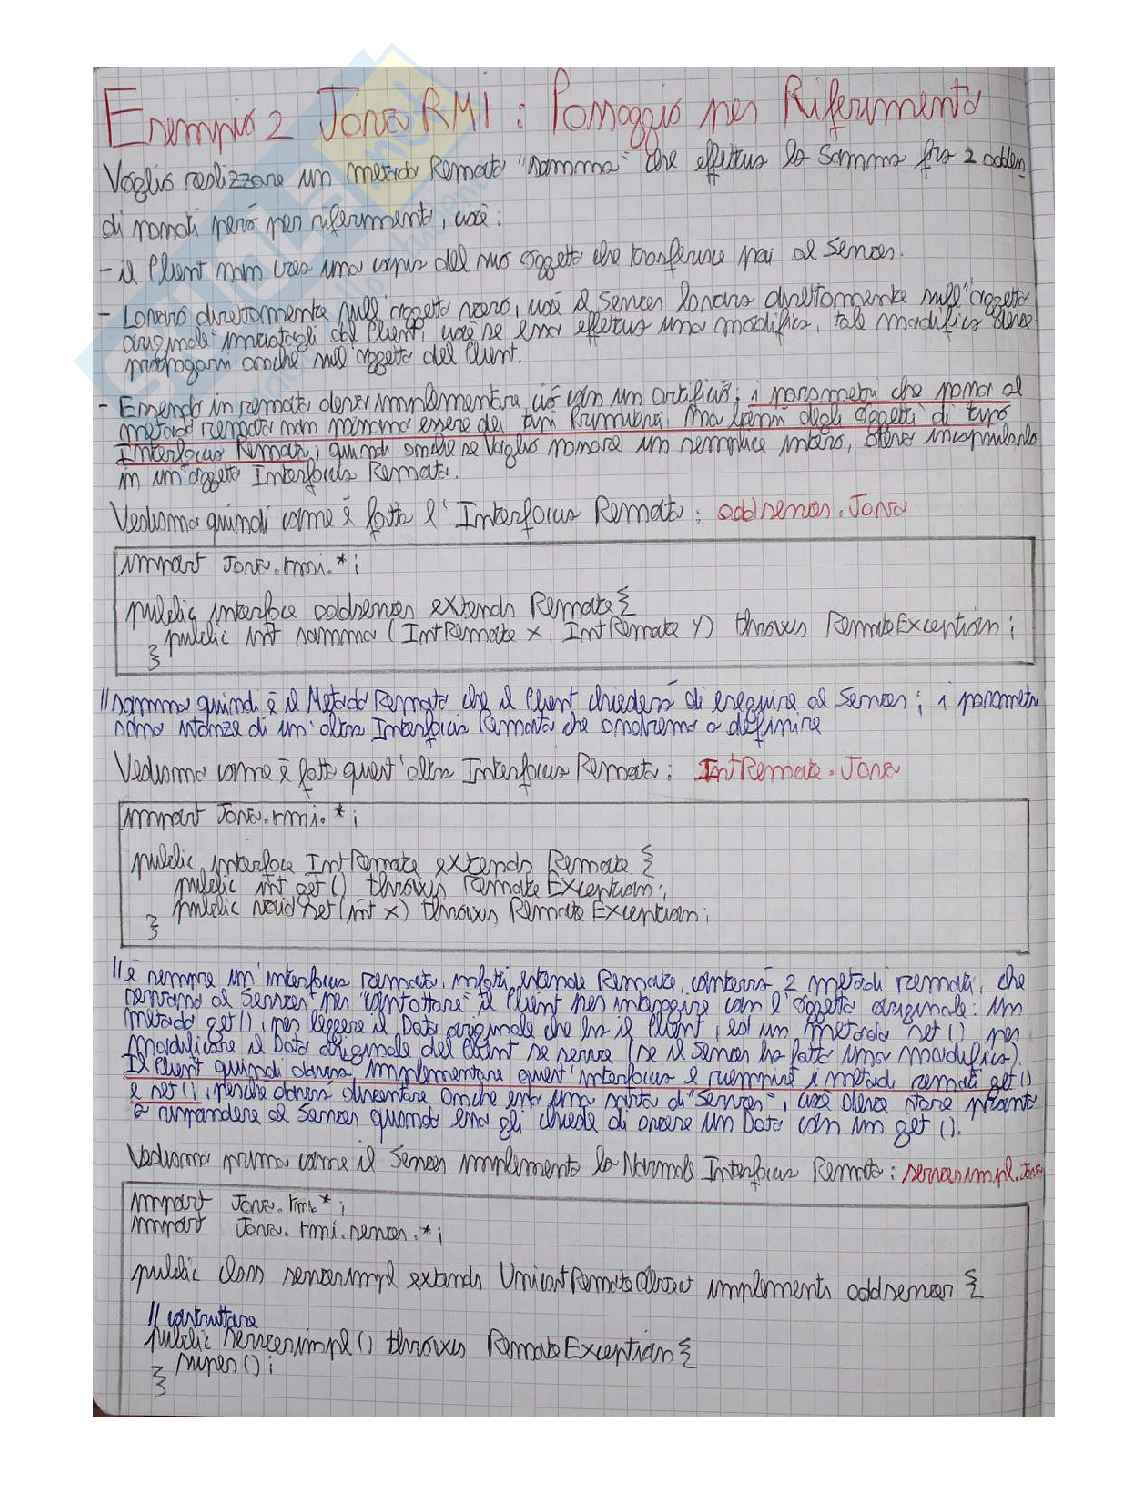 Esempio 2 Java RMI : Passaggio per Riferimento
Voglio realizzare un metodo Remoto "somma" che effettua la somma fra 2 adden
di passati però per riferimento, cioè:
- il Client non crea una copia del suo oggetto che trasferisce poi al Server.
- Lavoro direttamente sull'oggetto vero, cioè il Server lavora direttamente sull'oggetto
originale inviatogli dal Client, cioè se esso effettua una modifica, tale modifica deve
propagarsi anche sull'oggetto del Client.
- Essendo in remoto dovrò implementare ciò con un artificio; i parametri che passo al
metodo remoto non possono essere dei tipi Primitivi, ma bensì degli oggetti di tipo
Interfaccia Remota, quindi anche se voglio passare un semplice intero, dovrò incapsularlo
in un oggetto Interfaccia Remota.
Vediamo quindi come è fatta l'Interfaccia Remota: addserver.Java
import Java.rmi.*;
public interface addserver extends Remote{
public int somma (IntRemote x IntRemote y) throws RemoteException;
}
//somma quindi è il Metodo Remoto che il Client chiederà di eseguire al Server; i parametri
sono istanze di un'altra Interfaccia Remota che andremo a definire
Vediamo come è fatta quest'altra Interfaccia Remota: IntRemote.Java
import Java.rmi.*;
public interface IntRemote extends Remote {
public int get() throws RemoteException;
public void set(int x) throws RemoteException;
}
//è sempre un'interfaccia remota, infatti estende Remote, conterrà 2 metodi remoti, che
servono al Server per "contattare" il Client per interagire con l'oggetto originale: un
metodo get(), per leggere il Dato originale che ha il Client, ed un metodo set() per
modificare il Dato originale del Client se serve (se il Server ha fatto una modifica).
Il Client quindi dovrà implementare quest'interfaccia e riempire i metodi remoti get()
e set(), perché dovrà diventare anche esso una sorta di "Server", cioè deve stare pronto
a rispondere al Server quando esso gli chiede di avere un Dato con un get().
Vediamo prima come il Server implementa la Normale Interfaccia Remota: serverimpl.Java
import Java.rmi.*;
import Java.rmi.server.*;
public class serverimpl extends UnicastRemoteObject implements addserver {
// costruttore
public serverimpl() throws RemoteException{
super();
}